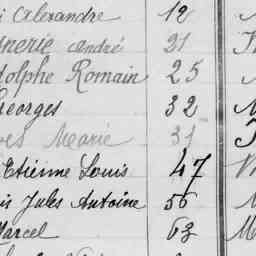 i Alexandre 12
gnerie André 21
dolphe Romain 25
Georges 32
Marie 31
Etienne Louis 47
is Jules Antoine 56
Marcel 63